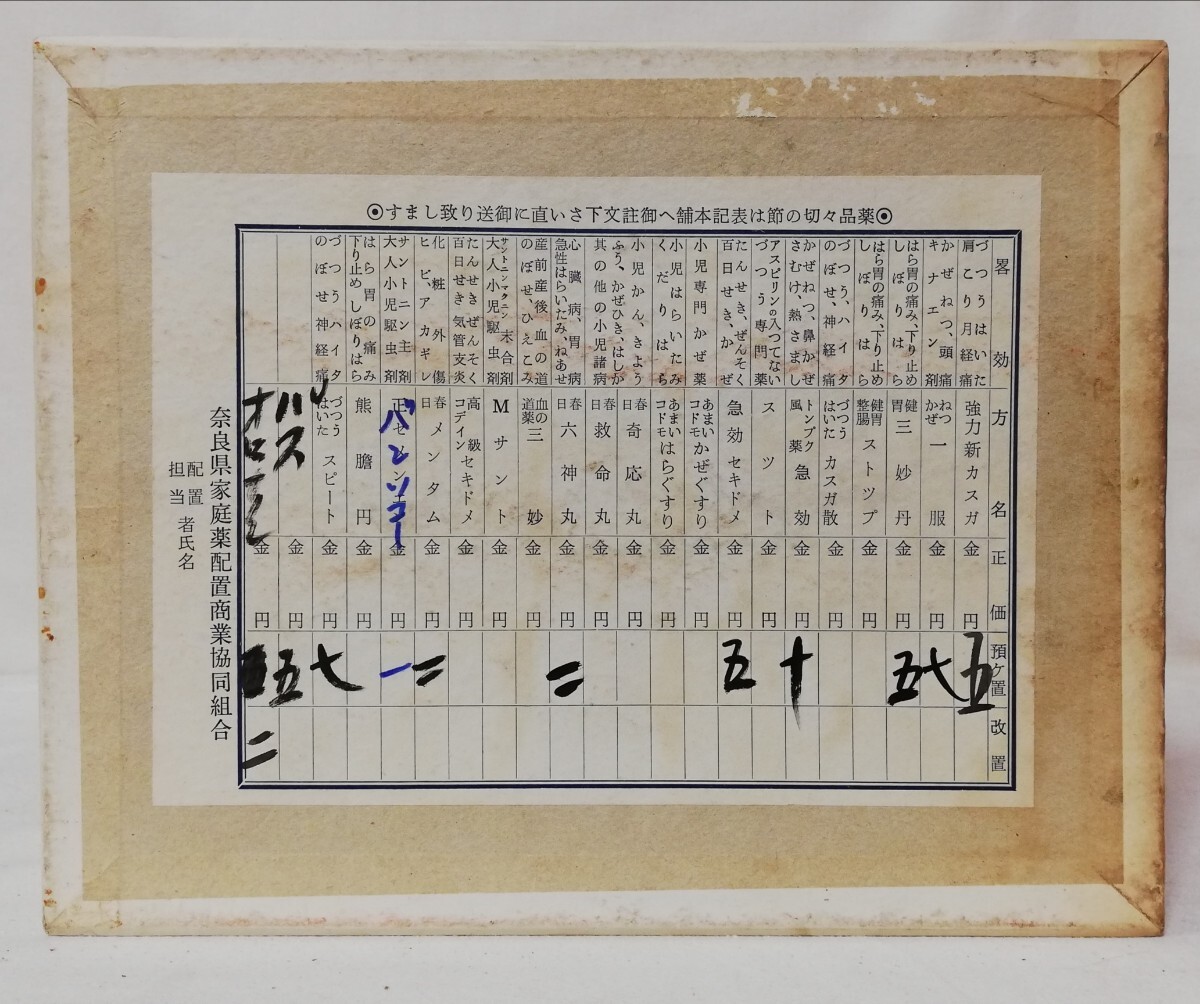 ◉薬品々切の節は表記本舗へ御註文下さい直に御送り致します◉
畧効 方名 正価 預ケ置 改置
づつうはいた肩こり月経痛 強力新カスガ 金 円 五
かぜねつ、頭痛キナエン剤 ねつかぜ一服 金 円 七
はら胃の痛み、下り止めしぼりはら 健胃三妙丹 金 円 五
はら胃の痛み、下り止めしぼりはら 健胃整腸ストツプ 金 円
づつう、ハイタのぼせ、神経痛 づつうはいたカスガ散 金 円
かぜねつ、鼻かぜさむけ、熱さまし トンプク風薬急効 金 円 十
アスピリンの入つてないづつう専門薬 スツト 金 円
たんせき、ぜんそく百日せき、かぜ 急効セキドメ 金 円 五
小児専門かぜ薬 あまいコドモかぜぐすり 金 円
小児はらいたみくだりはら あまいコドモはらぐすり 金 円
小児かん、きようふう、かぜひき、はしか 春日奇応丸 金 円
其の他の小児諸病 春日救命丸 金 円
心臓病、胃病急性はらいたみ、ねあせ 春日六神丸 金 円 二
産前産後血の道のぼせ、ひえこみ 血の道薬三妙 金 円
サントニンマクニン末合剤大人小児駆虫剤 Mサント 金 円
たんせきぜんそく百日せき気管支炎 高級コデインセキドメ 金 円
化粧外傷ヒビ、アカギレ 春日メンタム 金 円 二
サントニン主剤大人小児駆虫剤 正セメンエン バンソコー 金 円 一
はら胃の痛み下り止めしぼりはら 熊膽円 金 円
づつうハイタのぼせ神経痛 づつうはいたスピート 金 円 七
ハップス 金 円 五
金 円 二
奈良県家庭薬配置商業協同組合
配置担当者氏名